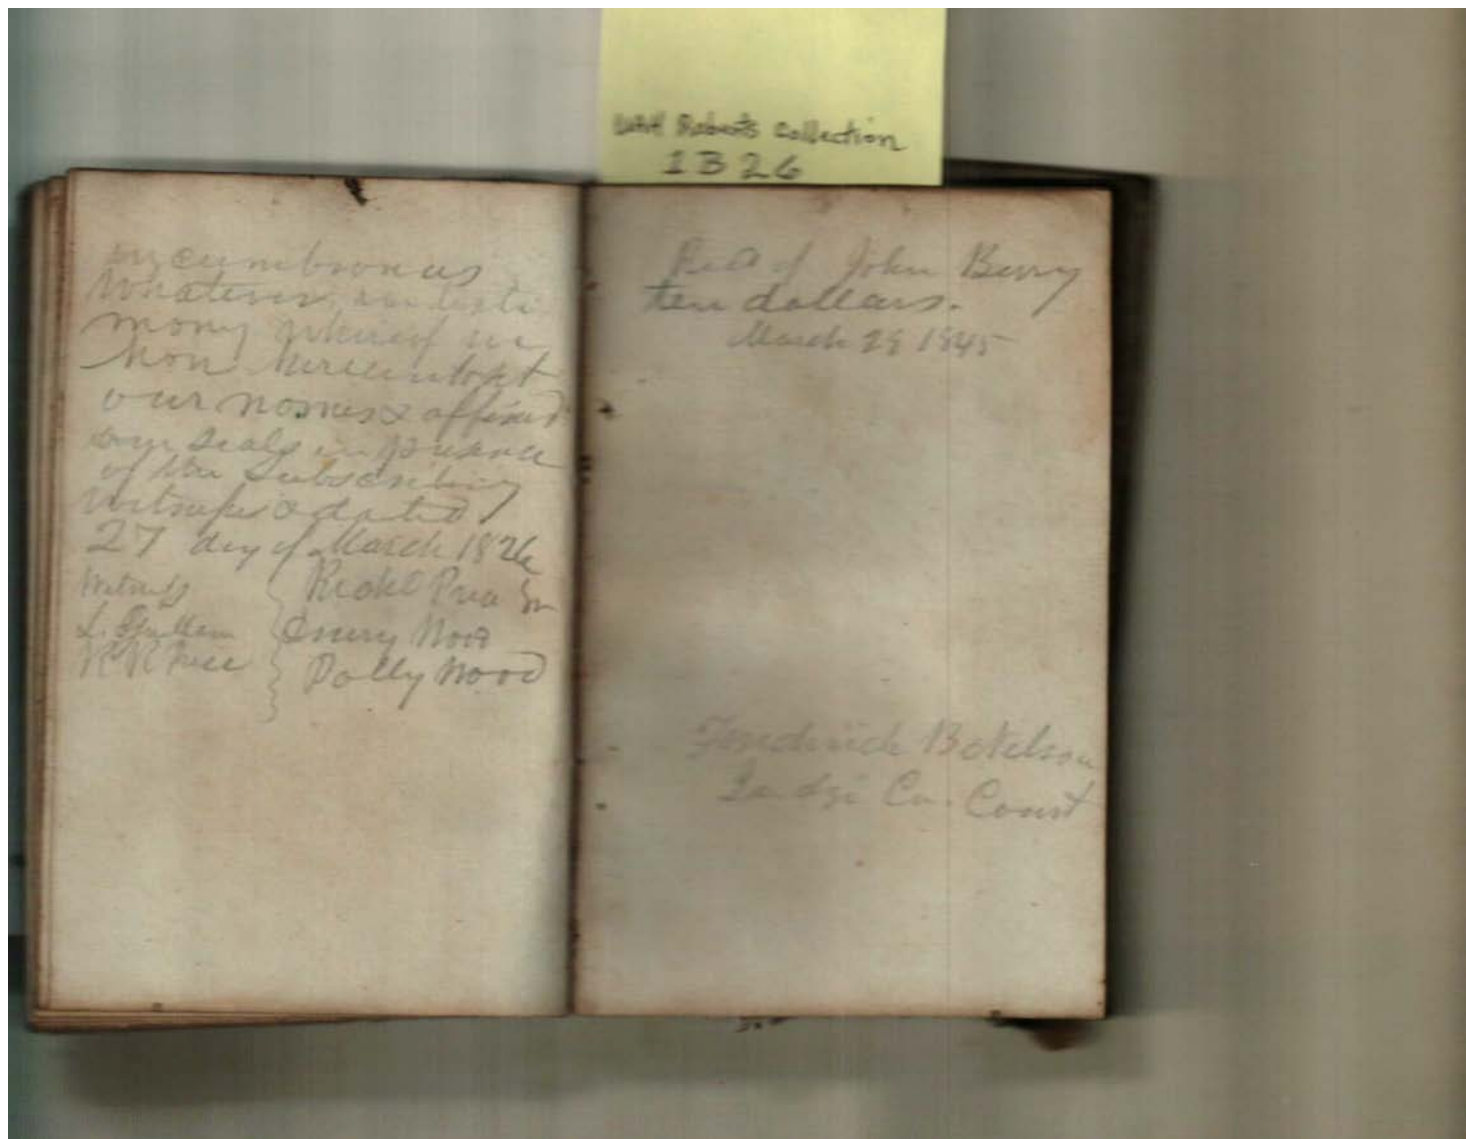 UAH Roberts Collection
1B26
incumbrances
Whatever, in testi
mony whereof we
have hereunto set
our names & affixed
our seals in presence
of the Subscribing
witness & dated
27 day of March 1826
Witness
L.
Emery Wood
Polly Wood
Recd of John Berry
ten dollars.
March 29 1845
Frederick B Nelson
Judge Co. Court